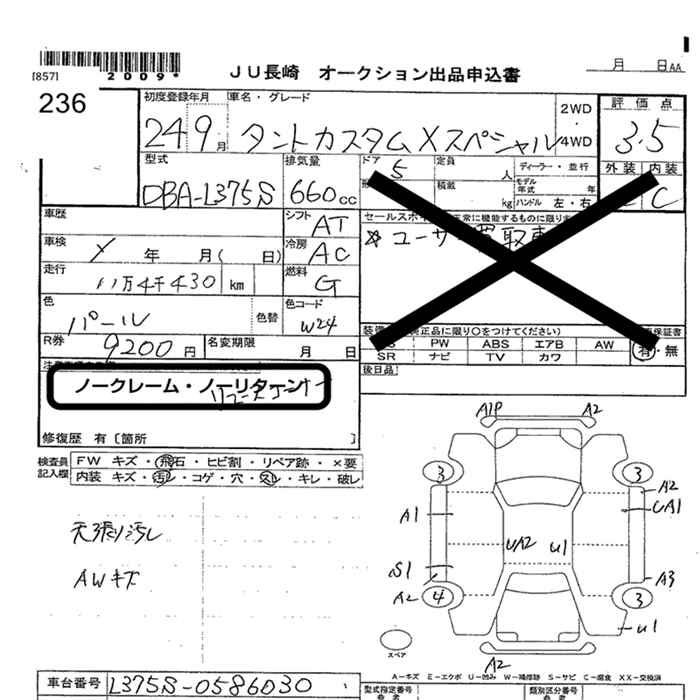 [857]
2009*
JU長崎 オークション出品申込書
月 日AA
236
初度登録年月
24 9月
車名・グレード
タントカスタムXスペシャル
2WD
・
4WD
評価点
3.5
外装 内装
C
型式
DBA-L375S
排気量
660cc
ドア
5
定員
人
ディーラー・並行
積載
kg
モデル年式
年
ハンドル 左・右
車歴
シフト
AT
車検
年 月( 日)
冷房
AC
走行
11万4千430 km
燃料
G
色
パール
色替
色コード
W24
R券
9200円
名変期限
月 日
ユーザー買取車
PW ABS エアB AW
SR ナビ TV カワ
有・無
後日品
ノークレーム・ノーリターン
修復歴 有〔箇所 〕
検査員
記入欄
FW キズ・飛石・ヒビ割・リペア跡・×要
内装 キズ・汚レ・コゲ・穴・スレ・キレ・破レ
天張り汚レ
AWキズ
A1P A2
3 3
A2
A1 UA1
UA2 U1
S1 A3
A2 4 3
U1
スペア
A2
A－キズ E－エクボ U－凹み W－補修跡 S－サビ C－腐食 XX－交換済
車台番号
L375S-0586030
型式指定番号
類別区分番号